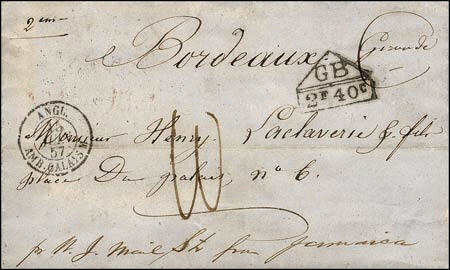 2eme
a Bordeaux Gironde
GB
2F 40c
ANGL.
57
AMB. CALAIS M.
Monsieur Henry Laclaverie & fils
place Du palais, no 6.
from Jamaica